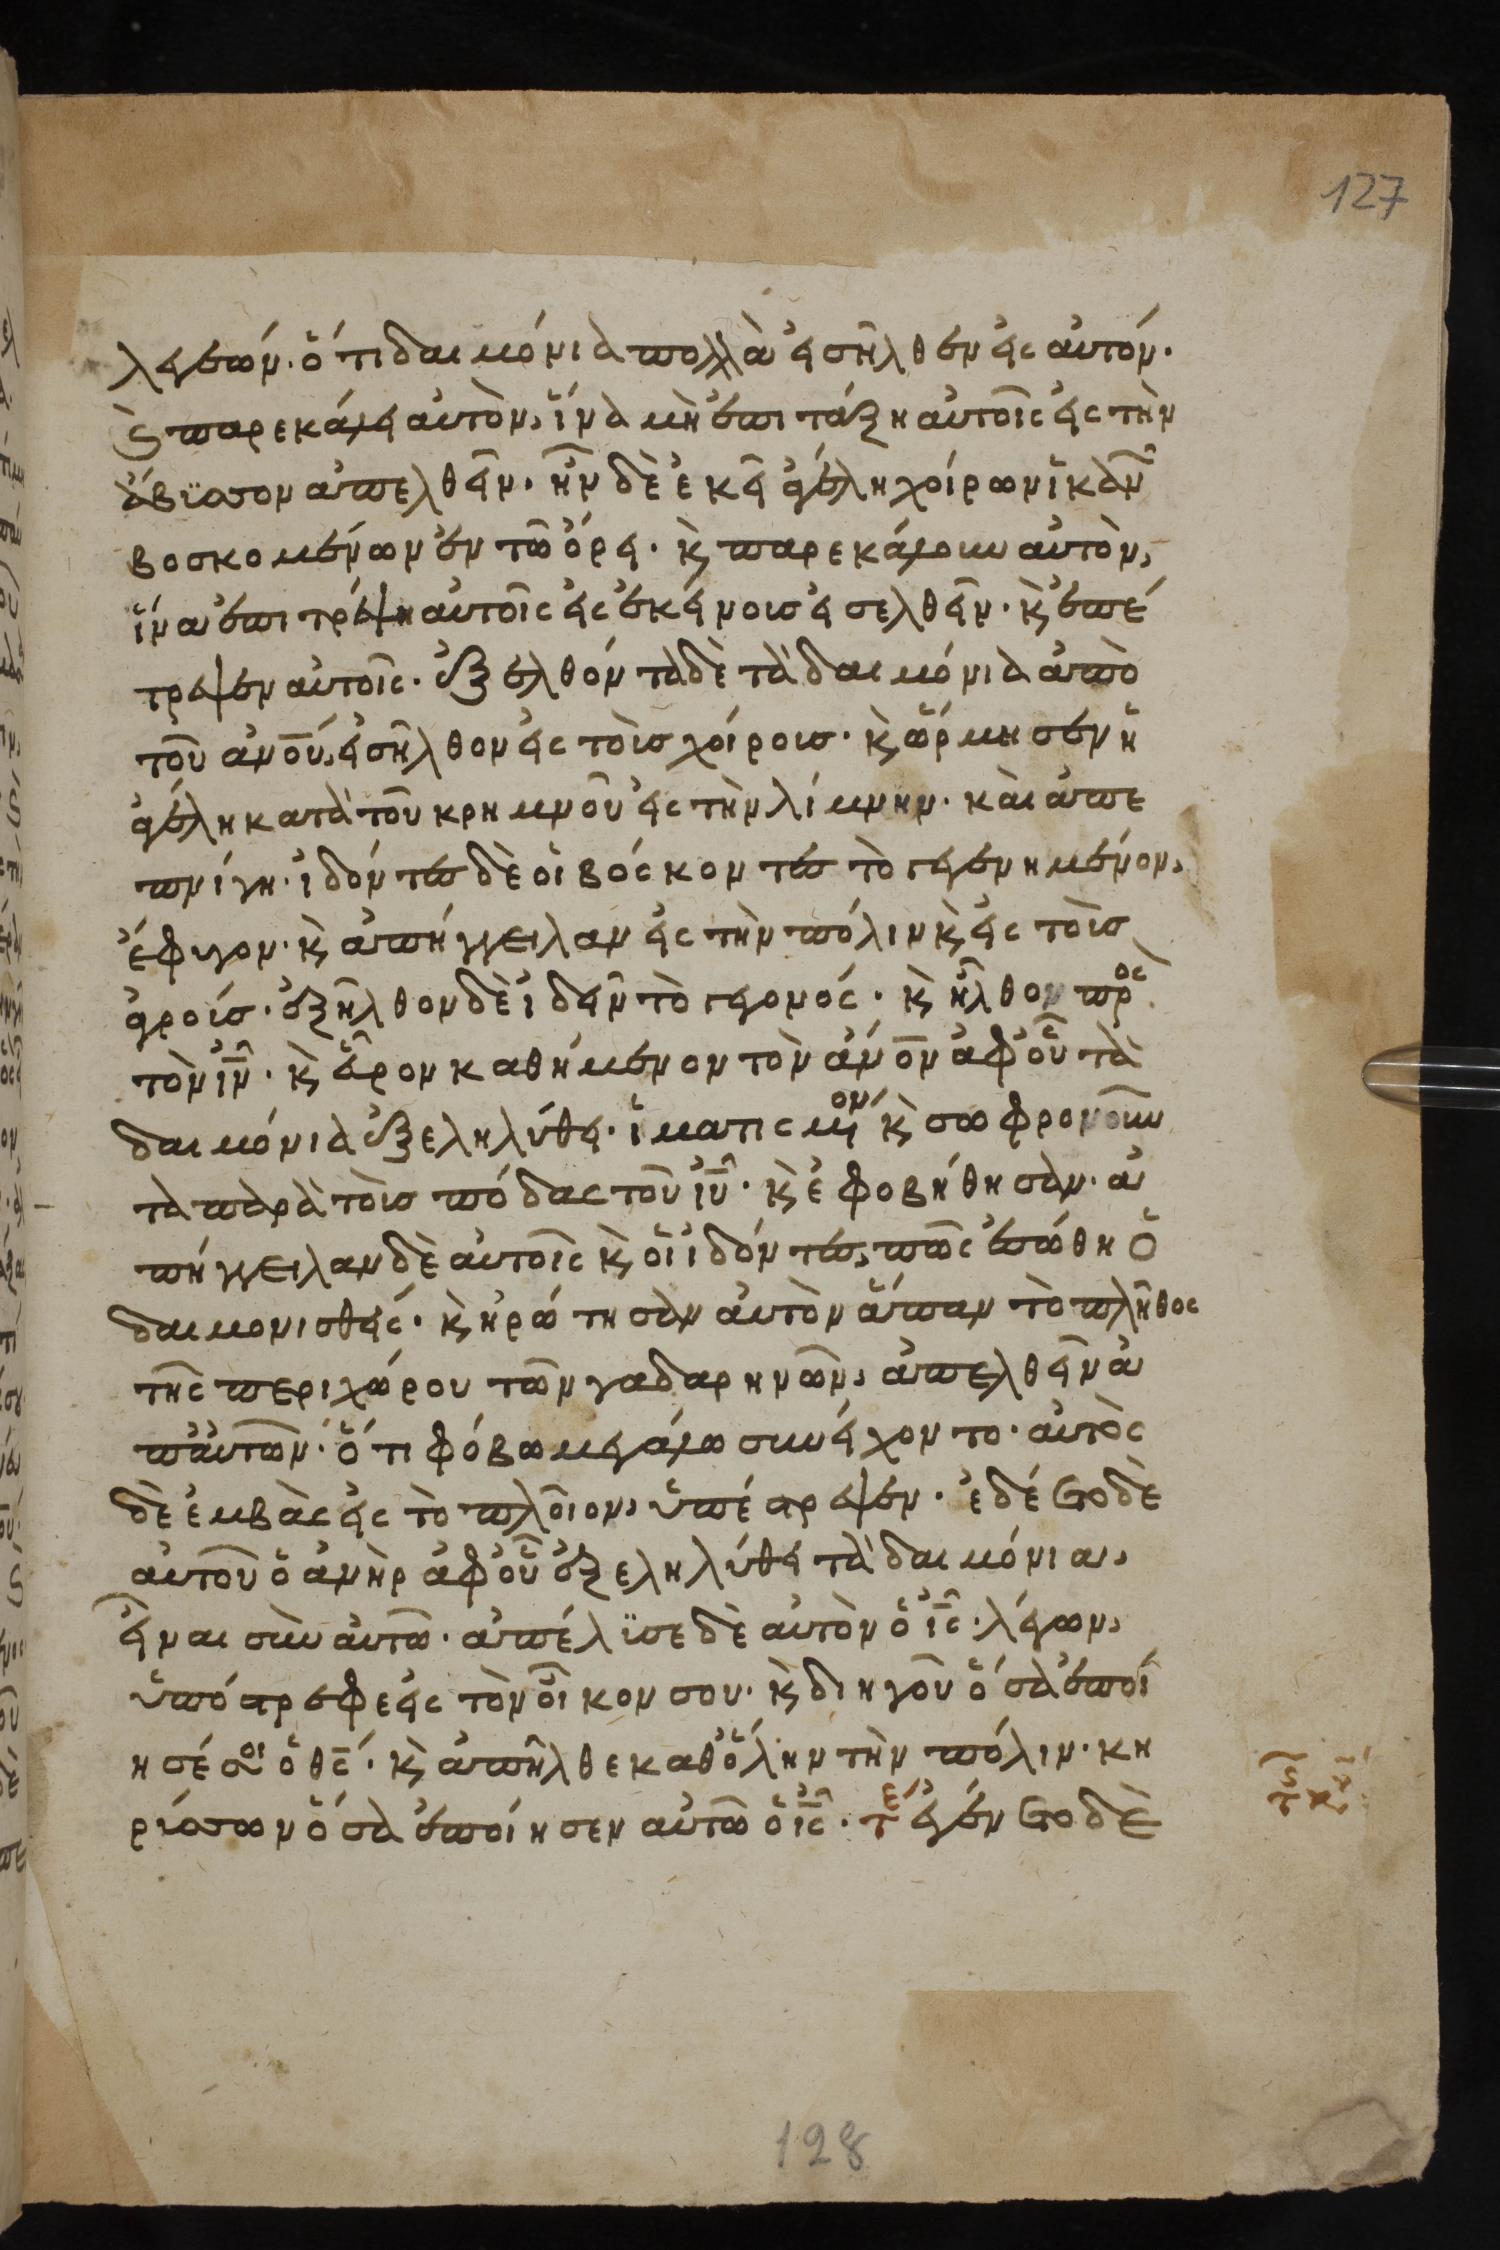 λεγεών· ὅτι δαιμόνια πολλὰ εἰσῆλθεν εἰς αὐτόν·
ϗ παρεκάλει αὐτὸν, ἵνα μὴ ἐπιτάξη αὐτοῖς εἰς τὴν
ἄβϋσσον ἀπελθεῖν· ἦν δὲ ἐκεῖ ἀγέλη χοίρων ἱκανῶν
βοσκομένων ἐν τῶ ὄρει· ϗ παρεκάλουν αὐτὸν,
ἵνα ἐπιτρέψη αὐτοῖς εἰς ἐκείνους εἰσελθεῖν· ϗ ἐπέ
τρεψεν αὐτοῖς· ἐξελθόντα δὲ τὰ δαιμόνια ἀπὸ
τοῦ ἀν̅ο̅υ̅, εἰσῆλθον εἰς τοὺς χοίρους· ϗ ὥρμησεν ἡ
ἀγέλη κατὰ τοῦ κρημνοῦ εἰς τὴν λίμνην· καὶ ἀπε
πνίγη· ἰδόντες δὲ οἱ βόσκοντες τὸ γεγενημένον,
ἔφυγον· ϗ ἀπήγγειλαν εἰς τὴν πόλιν ϗ εἰς τοὺς
ἀγρούς· ἐξῆλθον δὲ ἰδεῖν τὸ γεγονός· ϗ ἦλθον πρὸς
τὸν ι̅ν̅· ϗ εὗρον καθήμενον τὸν ἄν̅ο̅ν̅ ἀφ᾿ οὗ τὰ
δαιμόνια ἐξεληλύθει· ἱματισμένον ϗ σωφρονοῦν
τα παρὰ τοὺς πόδας τοῦ ι̅υ̅· ϗ ἐφοβήθησαν· ἀ
πήγγειλαν δὲ αὐτοῖς ϗ οἱ ἰδόντες, πῶς ἐσώθη ὁ
δαιμονισθείς· ϗ ἠρώτησαν αὐτὸν ἅπαν τὸ πλῆθος
τῆς περιχώρου τῶν γαδαρηνῶν, ἀπελθεῖν ἀ
π᾿ αὐτῶν· ὅτι φόβω μεγάλω συνείχοντο· αὐτὸς
δὲ ἐμβὰς εἰς τὸ πλοῖον, ὑπέστρεψεν· ἐδέετο δὲ
αὐτοῦ ὁ ἀνὴρ ἀφ᾿ οὗ ἐξεληλύθει τὰ δαιμόνια,
εἶναι σὺν αὐτῶ· ἀπέλϋσε δὲ αὐτὸν ὁ ι̅ς̅· λέγων,
ὑπόστρεφε εἰς τὸν οἶκον σου· ϗ διηγοῦ ὅσα ἐποί
ησέ σοι ὁ θ̅ς̅· ϗ ἀπῆλθε καθ᾿ ὅλην τὴν πόλιν· κη
ρύσσων ὅσα ἐποίησεν αὐτῶ ὁ ι̅ς̅· τε ἐγένετο δὲ
127
128